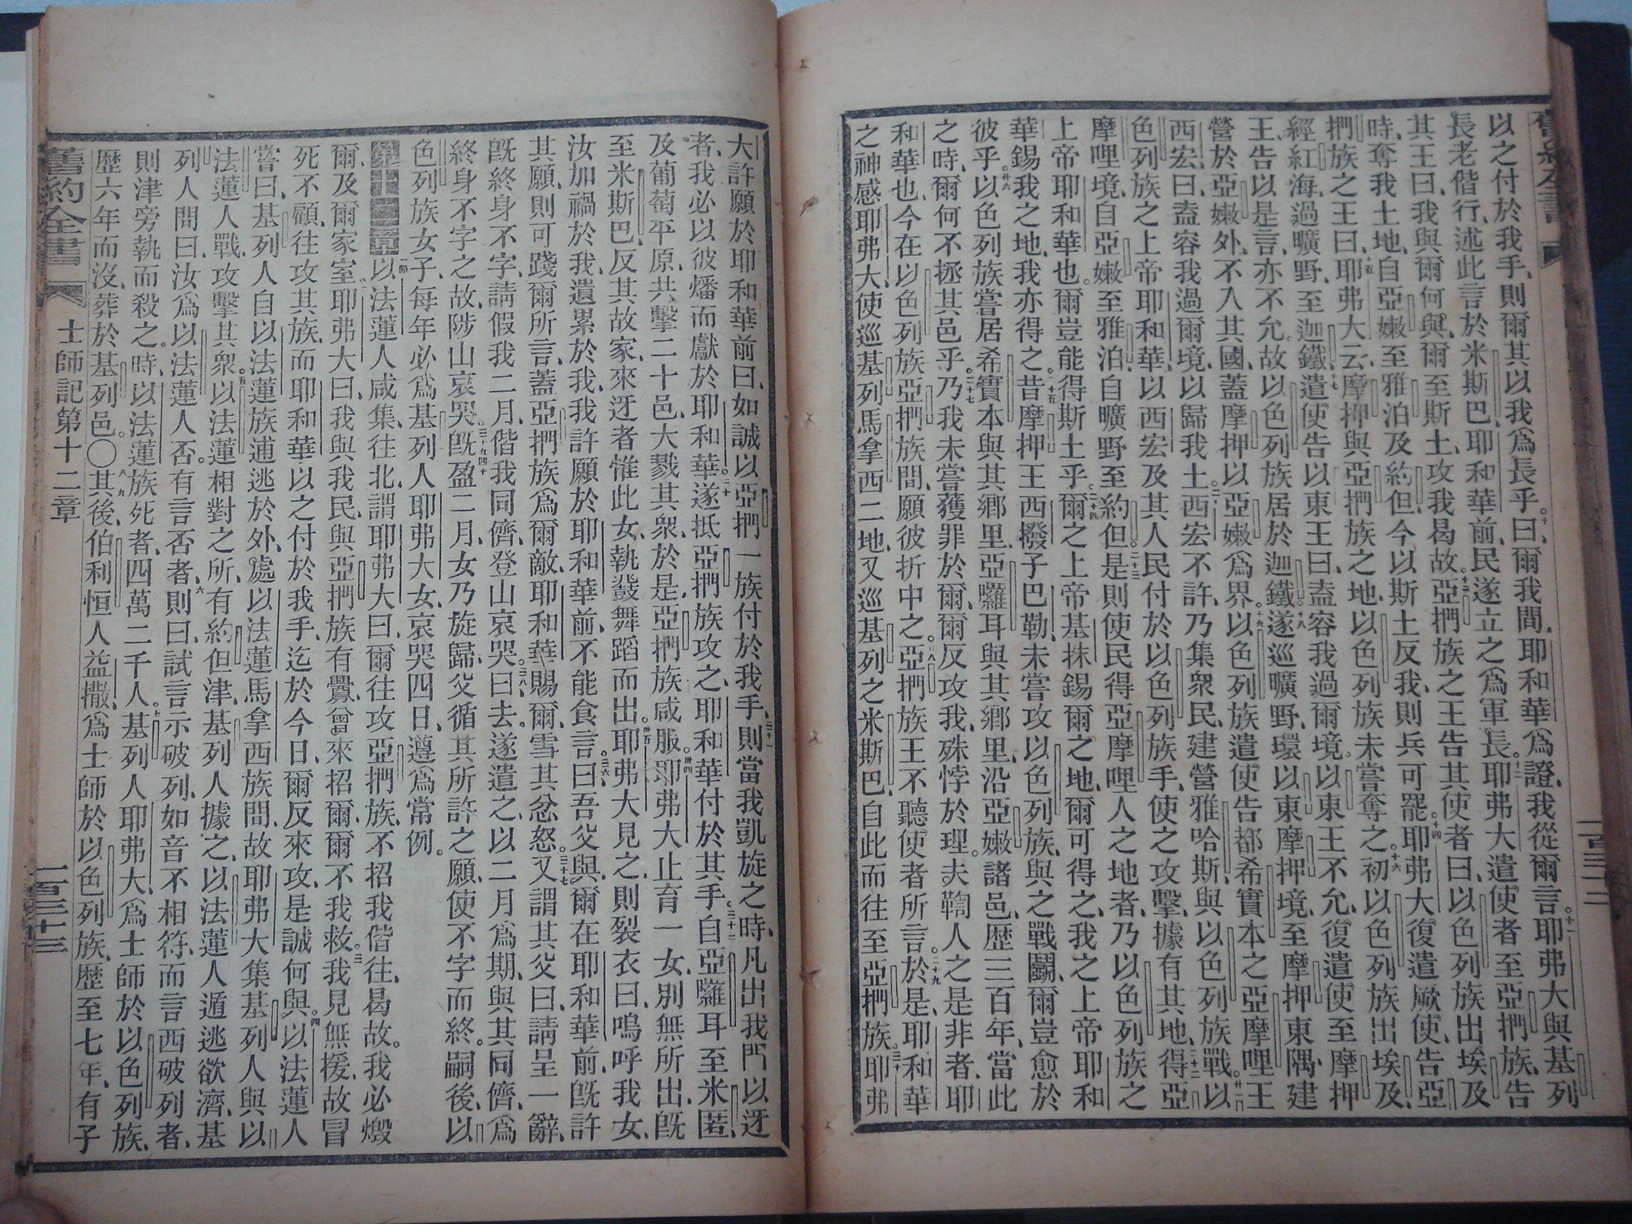 以之付於我手、則爾其以我爲長乎。曰爾我間、耶和華爲證、我從爾言。耶弗大與基列
長老偕行、述此言於米斯巴、耶和華前、民遂立之爲軍長。耶弗大遣使者至亞捫族、告
其王曰、我與爾何與、爾至斯土、攻我曷故。亞捫族之王告其使者曰、以色列族出埃及
時、奪我土地、自亞嫩至雅泊及約但、今以斯土反我、則兵可罷。耶弗大復遣厥使、告亞
捫族之王曰、耶弗大云、摩押與亞捫族之地、以色列族未嘗奪之、初以色列族出埃及、
經紅海、過曠野、至迦鐵、遣使告以東王曰、盍容我過爾境、以東王不允、復遣使至摩押
王、告以是言、亦不允、故以色列族居於迦鐵。遂巡曠野、環以東摩押境、至摩押東隅、建
營於亞嫩外、不入其國、蓋摩押以亞嫩爲界。以色列族遣使告都希實本之亞摩哩王
西宏曰、盍容我過爾境、以歸我土。西宏不許、乃集衆民、建營雅哈斯、與以色列族戰。以
色列族之上帝耶和華、以西宏及其人民付於以色列族手、使之攻擊、據有其地、得亞
摩哩境、自亞嫩至雅泊、自曠野至約但。是則使民得亞摩哩人之地者、乃以色列族之
上帝耶和華也。爾豈能得斯土乎。爾之上帝基抹錫爾之地、爾可得之、我之上帝耶和
華錫我之地、我亦得之。昔摩押王西撥子巴勒、未嘗攻以色列族、與之戰鬭、爾豈愈於
彼乎。以色列族嘗居希實本與其鄉里、亞囉耳與其鄉里、沿亞嫩諸邑、歷三百年、當此
之時、爾何不拯其邑乎。乃我未嘗獲罪於爾、爾反攻我、殊悖於理。夫鞫人之是非者、耶
和華也、今在以色列族亞捫族間、願彼折中之。亞捫族王不聽使者所言。於是耶和華
之神感耶弗大、使巡基列馬拿西二地、又巡基列之米斯巴、自此而往至亞捫族。耶弗
大許願於耶和華前曰、如誠以亞捫一族付於我手、則當我凱旋之時、凡出我門以迓
者、我必以彼燔而獻於耶和華。遂抵亞捫族攻之、耶和華付於其手。自亞囉耳至米匿、
及葡萄平原、共擊二十邑、大戮其衆、於是亞捫族咸服。耶弗大止育一女、別無所出、旣
至米斯巴、反其故家、來迓者惟此女、執鼗舞蹈而出、耶弗大見之、則裂衣曰、嗚呼我女、
汝加禍於我、遺累於我、我許願於耶和華前、不能食言。曰、吾父與、爾在耶和華前、旣許
其願、則可踐爾所言、蓋亞捫族爲爾敵、耶和華賜爾、雪其忿怒。又謂其父曰、請呈一辭、
旣終身不字、請假我二月、偕我同儕、登山哀哭。曰去。遂遣之以二月爲期、與其同儕、爲
終身不字之故、陟山哀哭。旣盈二月、女乃旋歸、父循其所許之願、使不字而終。嗣後以
色列族女子、每年必爲基列人耶弗大女、哀哭四日、遵爲常例。
以法蓮人咸集、往北、謂耶弗大曰、爾往攻亞捫族、不招我偕往、曷故。我必燬
爾、及爾家室。耶弗大曰、我與我民、與亞捫族有釁、曾來招爾、爾不我救、我見無援、故冒
死不顧、往攻其族、而耶和華以之付於我手、迄於今日、爾反來攻、是誠何與。以法蓮人
嘗曰、基列人自以法蓮族逋逃於外、處以法蓮馬拿西族間、故耶弗大集基列人與以
法蓮人戰、攻擊其衆。以法蓮相對之所、有約但津、基列人據之、以法蓮人遁逃欲濟、基
列人問曰、汝爲以法蓮人否、有言否者、則曰、試言示破列、如音不相符、而言西破列者、
則津旁執而殺之、時以法蓮族死者、四萬二千人。基列人耶弗大、爲士師於以色列族、
歷六年而沒、葬於基列邑。〇其後、伯利恒人益撒、爲士師於以色列族、歷至七年、有子
舊約全書 士師記第十二章 一百三十三